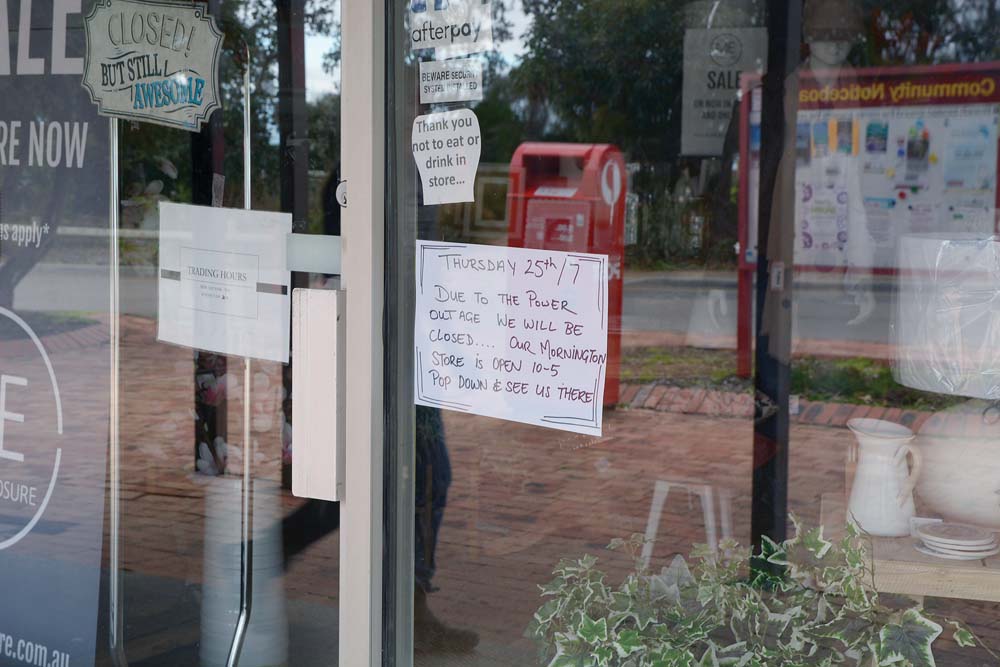 ALE
CLOSED!
BUT STILL
AWESOME
RE NOW
s apply*
TRADING HOURS
E
OSURE
re.com.au
afterpay
BEWARE SECURITY
SYSTEM INSTALLED
Thank you
not to eat or
drink in
store...
THURSDAY 25th/7
DUE TO THE POWER
OUTAGE WE WILL BE
CLOSED.... OUR MORNINGTON
STORE IS OPEN 10-5
POP DOWN & SEE US THERE
SALE
ON NOW IN
AND
Community Noticeboa